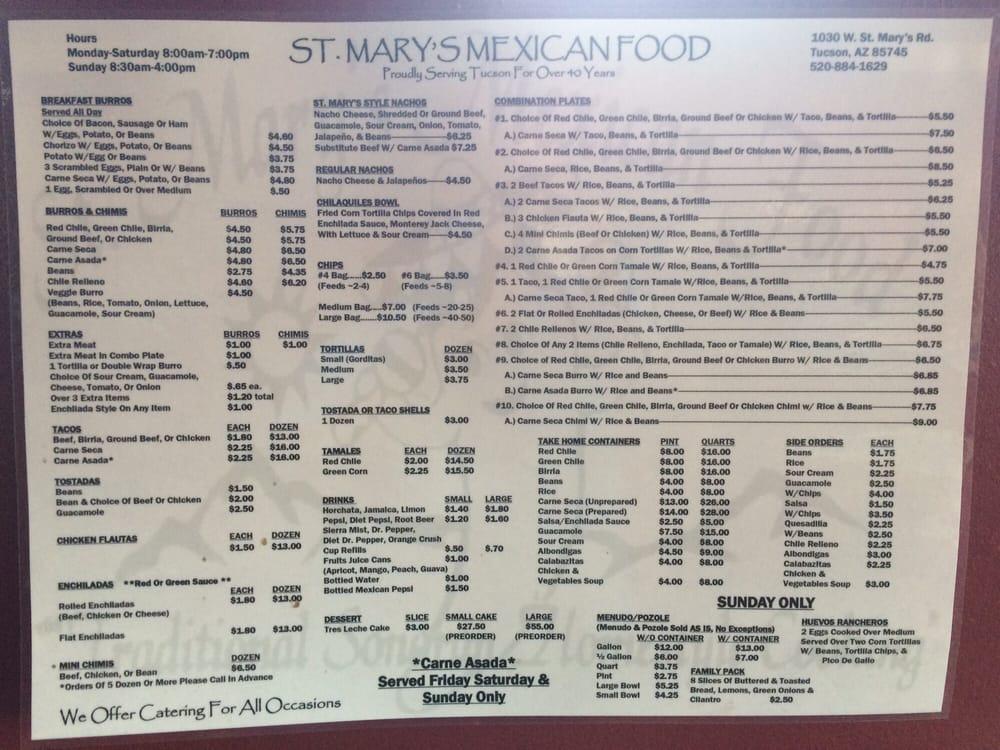 Hours
Monday-Saturday 8:00am-7:00pm
Sunday 8:30am-4:00pm
ST. MARY'S MEXICAN FOOD
Proudly Serving Tucson For Over 40 Years
1030 W. St. Mary's Rd.
Tucson, AZ 85745
520-884-1629
BREAKFAST BURROS
Served All Day
Choice Of Bacon, Sausage Or Ham
W/Eggs, Potato, Or Beans $4.60
Chorizo W/ Eggs, Potato, Or Beans $4.50
Potato W/Egg Or Beans $3.75
3 Scrambled Eggs, Plain Or W/ Beans $3.75
Carne Seca W/ Eggs, Potato, Or Beans $4.80
1 Egg, Scrambled Or Over Medium $.50
BURROS & CHIMIS BURROS CHIMIS
Red Chile, Green Chile, Birria, $4.50 $5.75
Ground Beef, Or Chicken $4.50 $5.75
Carne Seca $4.80 $6.50
Carne Asada* $4.80 $6.50
Beans $2.75 $4.35
Chile Relleno $4.60 $6.20
Veggie Burro $4.50
(Beans, Rice, Tomato, Onion, Lettuce,
Guacamole, Sour Cream)
EXTRAS BURROS CHIMIS
Extra Meat $1.00 $1.00
Extra Meat In Combo Plate $1.00
1 Tortilla or Double Wrap Burro $.50
Choice Of Sour Cream, Guacamole,
Cheese, Tomato, Or Onion $.65 ea.
Over 3 Extra Items $1.20 total
Enchilada Style On Any Item $1.00
TACOS EACH DOZEN
Beef, Birria, Ground Beef, Or Chicken $1.80 $13.00
Carne Seca $2.25 $16.00
Carne Asada* $2.25 $16.00
TOSTADAS
Beans $1.50
Bean & Choice Of Beef Or Chicken $2.00
Guacamole $2.50
CHICKEN FLAUTAS EACH DOZEN
$1.50 $13.00
ENCHILADAS **Red Or Green Sauce **
EACH DOZEN
Rolled Enchiladas $1.80 $13.00
(Beef, Chicken Or Cheese)
Flat Enchiladas $1.80 $13.00
MINI CHIMIS DOZEN
Beef, Chicken, Or Bean $6.50
*Orders Of 5 Dozen Or More Please Call In Advance
We Offer Catering For All Occasions
ST. MARY'S STYLE NACHOS
Nacho Cheese, Shredded Or Ground Beef,
Guacamole, Sour Cream, Onion, Tomato,
Jalapeño, & Beans----$6.25
Substitute Beef W/ Carne Asada $7.25
REGULAR NACHOS
Nacho Cheese & Jalapeños----$4.50
CHILAQUILES BOWL
Fried Corn Tortilla Chips Covered In Red
Enchilada Sauce, Monterey Jack Cheese,
With Lettuce & Sour Cream----$4.50
CHIPS
#4 Bag.....$2.50 #6 Bag...$3.50
(Feeds ~2-4) (Feeds ~5-8)
Medium Bag....$7.00 (Feeds ~20-25)
Large Bag.....$10.50 (Feeds ~40-50)
TORTILLAS DOZEN
Small (Gorditas) $3.00
Medium $3.50
Large $3.75
TOSTADA OR TACO SHELLS
1 Dozen $3.00
TAMALES EACH DOZEN
Red Chile $2.00 $14.50
Green Corn $2.25 $15.50
DRINKS SMALL LARGE
Horchata, Jamaica, Limon $1.40 $1.80
Pepsi, Diet Pepsi, Root Beer $1.20 $1.60
Sierra Mist, Dr. Pepper,
Diet Dr. Pepper, Orange Crush
Cup Refills $.50 $.70
Fruits Juice Cans $1.00
(Apricot, Mango, Peach, Guava)
Bottled Water $1.00
Bottled Mexican Pepsi $1.50
DESSERT SLICE SMALL CAKE LARGE
Tres Leche Cake $3.00 $27.50 $55.00
(PREORDER) (PREORDER)
*Carne Asada*
Served Friday Saturday &
Sunday Only
COMBINATION PLATES
#1. Choice Of Red Chile, Green Chile, Birria, Ground Beef Or Chicken W/ Taco, Beans, & Tortilla----$5.50
A.) Carne Seca W/ Taco, Beans, & Tortilla----$7.50
#2. Choice Of Red Chile, Green Chile, Birria, Ground Beef Or Chicken W/ Rice, Beans, & Tortilla----$6.50
A.) Carne Seca, Rice, Beans, & Tortilla----$8.50
#3. 2 Beef Tacos W/ Rice, Beans, & Tortilla----$5.25
A.) 2 Carne Seca Tacos W/ Rice, Beans, & Tortilla----$6.25
B.) 3 Chicken Flauta W/ Rice, Beans, & Tortilla----$5.50
C.) 4 Mini Chimis (Beef Or Chicken) W/ Rice, Beans, & Tortilla----$5.50
D.) 2 Carne Asada Tacos on Corn Tortillas W/ Rice, Beans, & Tortilla*----$7.00
#4. 1 Red Chile Or Green Corn Tamale W/ Rice, Beans, & Tortilla----$4.75
#5. 1 Taco, 1 Red Chile Or Green Corn Tamale W/Rice, Beans, & Tortilla----$5.50
A.) Carne Seca Taco, 1 Red Chile Or Green Corn Tamale W/Rice, Beans, & Tortilla----$7.75
#6. 2 Flat Or Rolled Enchiladas (Chicken, Cheese, Or Beef) W/ Rice & Beans----$5.50
#7. 2 Chile Rellenos W/ Rice, Beans, & Tortilla----$6.50
#8. Choice Of Any 2 Items (Chile Relleno, Enchilada, Taco or Tamale) W/ Rice, Beans, & Tortilla----$6.75
#9. Choice of Red Chile, Green Chile, Birria, Ground Beef Or Chicken Burro W/ Rice & Beans----$6.50
A.) Carne Seca Burro W/ Rice and Beans----$6.85
B.) Carne Asada Burro W/ Rice and Beans*----$6.85
#10. Choice Of Red Chile, Green Chile, Birria, Ground Beef Or Chicken Chimi w/ Rice & Beans----$7.75
A.) Carne Seca Chimi W/ Rice & Beans----$9.00
TAKE HOME CONTAINERS PINT QUARTS
Red Chile $8.00 $16.00
Green Chile $8.00 $16.00
Birria $8.00 $16.00
Beans $4.00 $8.00
Rice $4.00 $8.00
Carne Seca (Unprepared) $13.00 $26.00
Carne Seca (Prepared) $14.00 $28.00
Salsa/Enchilada Sauce $2.50 $5.00
Guacamole $7.50 $15.00
Sour Cream $4.00 $8.00
Albondigas $4.50 $9.00
Calabazitas $4.00 $8.00
Chicken &
Vegetables Soup $4.00 $8.00
SIDE ORDERS EACH
Beans $1.75
Rice $1.75
Sour Cream $2.25
Guacamole $2.50
W/Chips $4.00
Salsa $1.50
W/Chips $3.50
Quesadilla $2.25
W/Beans $2.50
Chile Relleno $2.25
Albondigas $3.00
Calabazitas $2.25
Chicken &
Vegetables Soup $3.00
SUNDAY ONLY
MENUDO/POZOLE
(Menudo & Pozole Sold AS IS, No Exceptions)
W/O CONTAINER W/ CONTAINER
Gallon $12.00 $13.00
½ Gallon $6.00 $7.00
Quart $3.75
Pint $2.75
Large Bowl $5.25
Small Bowl $4.25
FAMILY PACK
8 Slices Of Buttered & Toasted
Bread, Lemons, Green Onions &
Cilantro $2.50
HUEVOS RANCHEROS
2 Eggs Cooked Over Medium
Served Over Two Corn Tortillas
W/ Beans, Tortilla Chips, &
Pico De Gallo